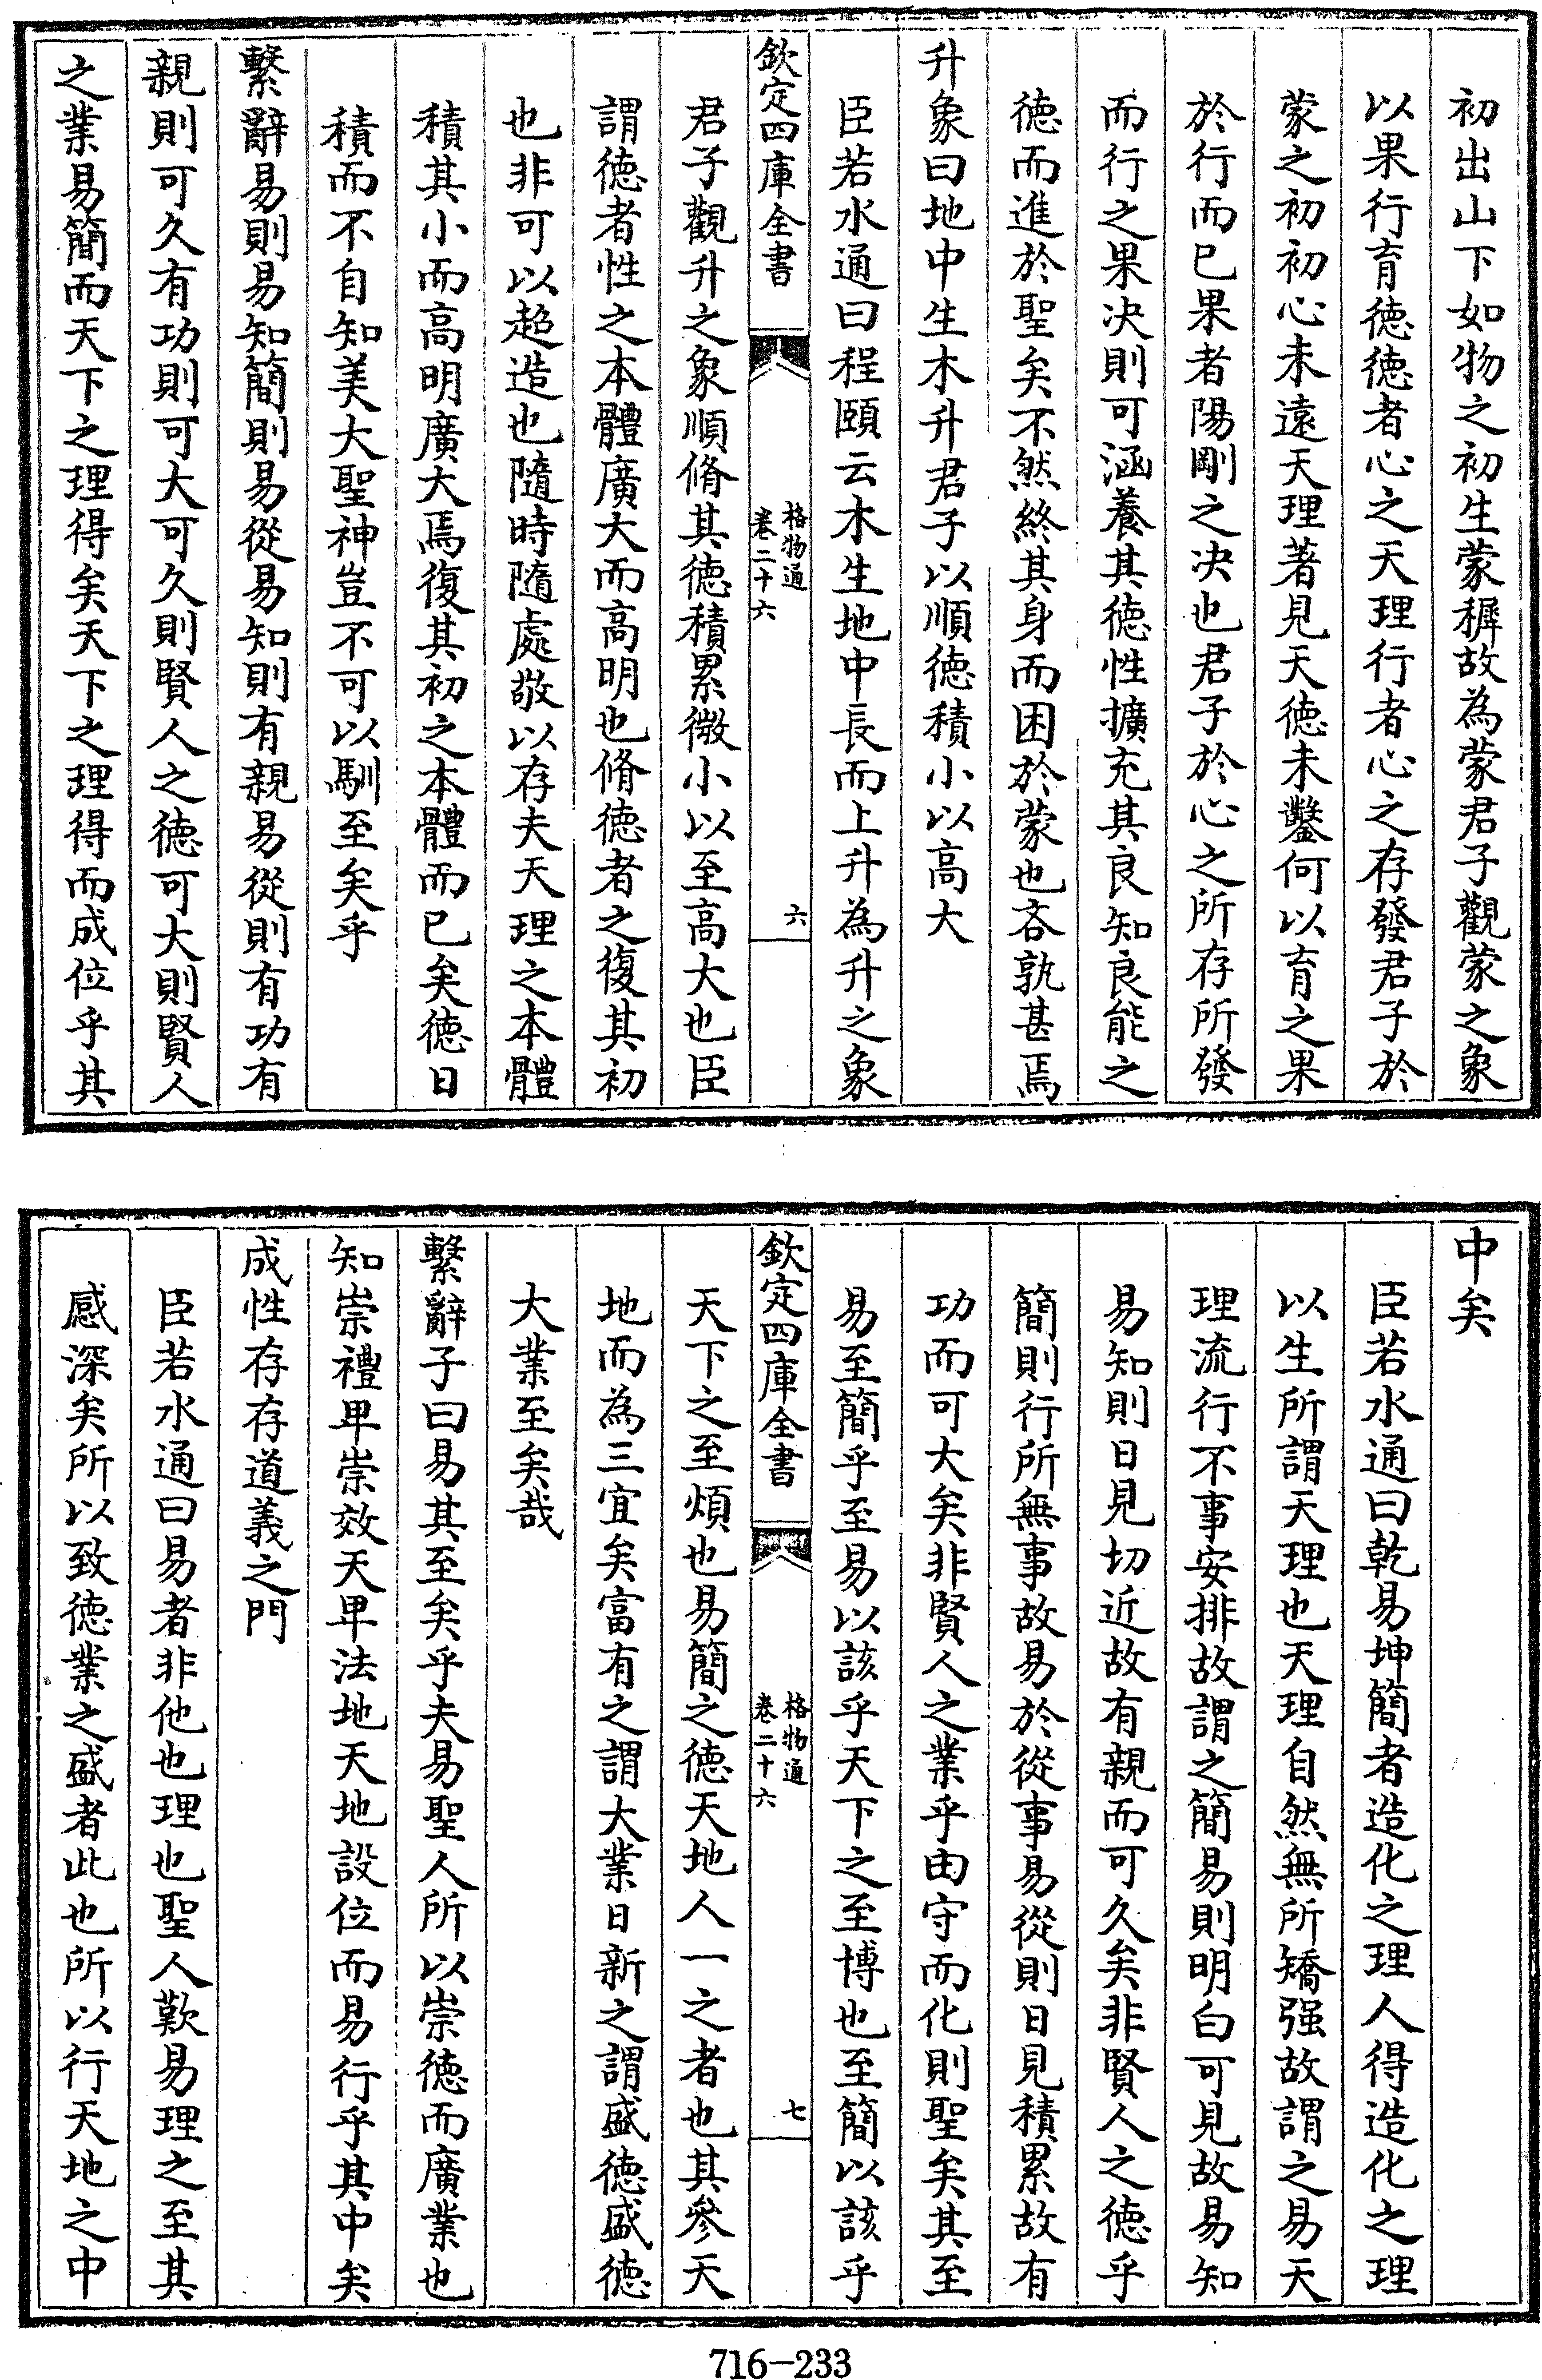 初出山下如物之初生蒙穉故為蒙君子觀蒙之象
以果行育徳徳者心之天理行者心之存發君子於
蒙之初初心未逺天理著見天徳未鑿何以育之果
於行而已果者陽剛之决也君子於心之所存所發
而行之果决則可涵養其徳性擴充其良知良能之
徳而進於聖矣不然終其身而困於蒙也吝孰甚焉
升象曰地中生木升君子以順徳積小以高大
臣若水通曰程頤云木生地中長而上升為升之象
欽定四庫全書
格物通
卷二十六
六
君子觀升之象順脩其徳積累微小以至高大也臣
謂徳者性之本體廣大而高明也脩徳者之復其初
也非可以超造也隨時隨處敬以存夫天理之本體
積其小而高明廣大焉復其初之本體而已矣徳日
積而不自知美大聖神豈不可以馴至矣乎
繫辭易則易知簡則易從易知則有親易從則有功有
親則可久有功則可大可久則賢人之徳可大則賢人
之業易簡而天下之理得矣天下之理得而成位乎其
中矣
臣若水通曰乾易坤簡者造化之理人得造化之理
以生所謂天理也天理自然無所矯强故謂之易天
理流行不事安排故謂之簡易則明白可見故易知
易知則日見切近故有親而可久矣非賢人之徳乎
簡則行所無事故易於從事易從則日見積累故有
功而可大矣非賢人之業乎由守而化則聖矣其至
易至簡乎至易以該乎天下之至博也至簡以該乎
欽定四庫全書
格物通
卷二十六
七
天下之至煩也易簡之徳天地人一之者也其參天
地而為三宜矣富有之謂大業日新之謂盛徳盛徳
大業至矣哉
繫辭子曰易其至矣乎夫易聖人所以崇徳而廣業也
知崇禮卑崇效天卑法地天地設位而易行乎其中矣
成性存存道義之門
臣若水通曰易者非他也理也聖人歎易理之至其
感深矣所以致徳業之盛者此也所以行天地之中
716-233